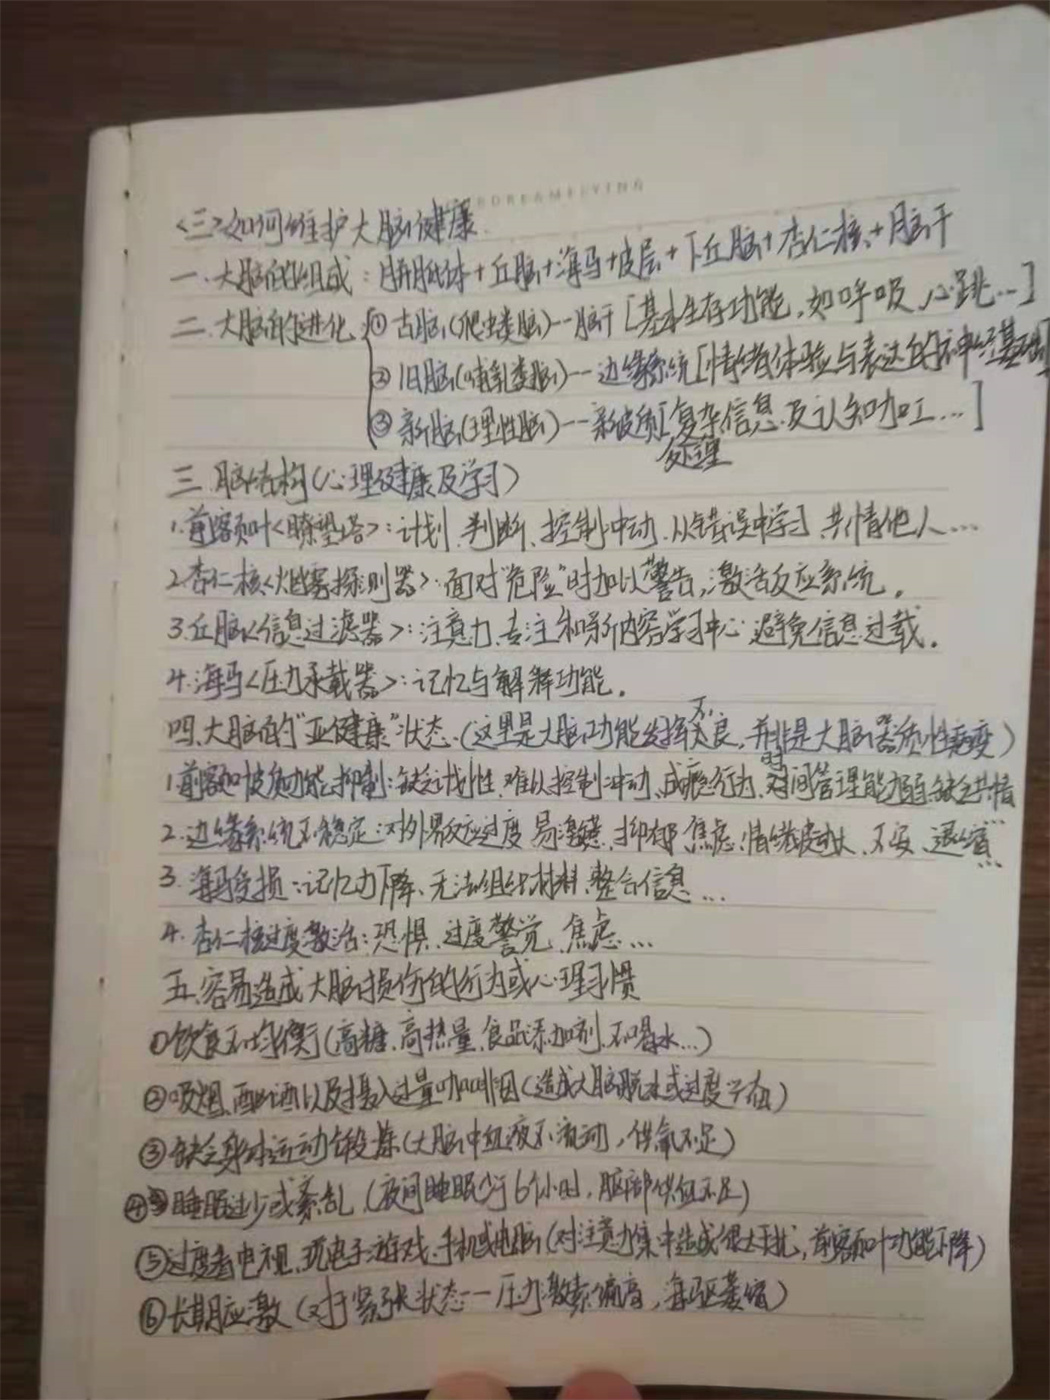 DREAMFLYING
<三>如何维护大脑健康.
一.大脑的组成:胼胝体+丘脑+海马+皮层+下丘脑+杏仁核+脑干
二.大脑的进化 ①古脑(爬虫类脑)--脑干[基本生存功能,如呼吸,心跳…]
②旧脑(哺乳类脑)--边缘系统[情绪体验与表达的神经基础]
③新脑(理性脑)--新皮质[复杂信息及认知加工…]
处理
三.脑结构(心理健康及学习)
1.前额叶<瞭望塔>:计划、判断、控制冲动、从错误中学习、共情他人…
2.杏仁核<烟雾探测器>:面对“危险”时加以警告,激活反应系统。
3.丘脑<信息过滤器>:注意力、专注和新内容学习中心、避免信息过载。
4.海马<压力承载器>:记忆与解释功能。
四、大脑的“亚健康”状态.(这里是大脑功能发挥不良,并非是大脑器质性病变)
1.前额叶皮质功能抑制:缺乏计划性、难以控制冲动、成瘾行为、时间管理能力弱、缺乏共情…
2.边缘系统不稳定:对外界反应过度、易激惹、抑郁、焦虑、情绪波动大、不安、退缩…
3.海马受损:记忆力下降、无法组织材料、整合信息…
4.杏仁核过度激活:恐惧、过度警觉、焦虑…
五、容易造成大脑损伤的行为或心理习惯
①饮食不均衡(高糖、高热量、食品添加剂、不喝水…)
②吸烟、酗酒以及摄入过量咖啡因(造成大脑脱水或过度兴奋)
③缺乏身体运动锻炼(大脑中血液不流动,供氧不足)
④睡眠过少或紊乱(夜间睡眠少于6个小时,脑部供血不足)
⑤过度看电视、玩电子游戏、手机或电脑(对注意力集中造成很大干扰,前额叶功能下降)
⑥长期应激(对于紧张状态--压力激素偏高,海马区萎缩)